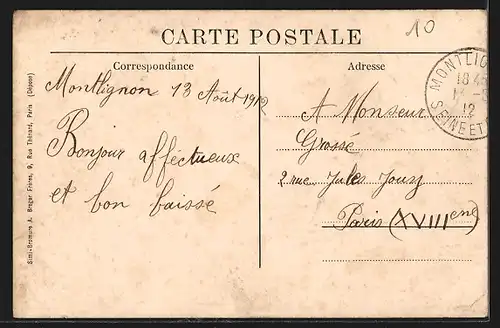 10
CARTE POSTALE
Correspondance
Montlignon 13 Août 1912
Bonjour affectueux
et bon baissé
Adresse
A Monseur
Grossé
2 rue Jules Jouy
Paris (XVIIIeme)
MONTLIGN
18 45
12
SEINE ET
Simi-Bromure A. Breger Frères, 9, Rue Thénard, Paris (Déposé)